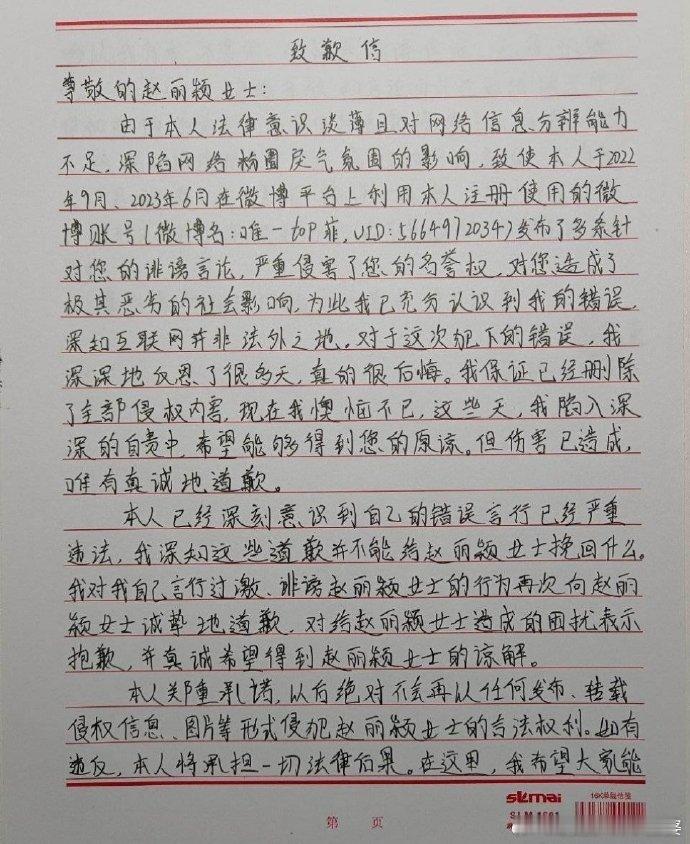 致歉信
尊敬的赵丽颖女士:
由于本人法律意识淡薄且对网络信息分辨能力
不足,深陷网络粉圈戾气氛围的影响,致使本人于2022
年9月、2023年6月在微博平台上利用本人注册使用的微
博账号(微博名:唯一top菲,UID:5664972034)发布了多条针
对您的诽谤言论,严重侵害了您的名誉权,对您造成了
极其恶劣的社会影响,为此我已充分认识到我的错误,
深知互联网并非法外之地。对于这次犯下的错误,我
深深地反思了很多天,真的很后悔。我保证已经删除
了全部侵权内容,现在我懊恼不已,这些天,我陷入深
深的自责中,希望能够得到您的原谅。但伤害已造成,
唯有真诚地道歉。
本人已经深刻意识到自己的错误言行已经严重
违法,我深知这些道歉并不能给赵丽颖女士挽回什么。
我对我自己言行过激、诽谤赵丽颖女士的行为再次向赵丽
颖女士诚挚地道歉,对给赵丽颖女士造成的困扰表示
抱歉,并真诚希望得到赵丽颖女士的谅解。
本人郑重承诺,以后绝对不会再以任何发布、转载
侵权信息、图片等形式侵犯赵丽颖女士的合法权利。如有
违反,本人将承担一切法律后果。在这里,我希望大家能
第 页